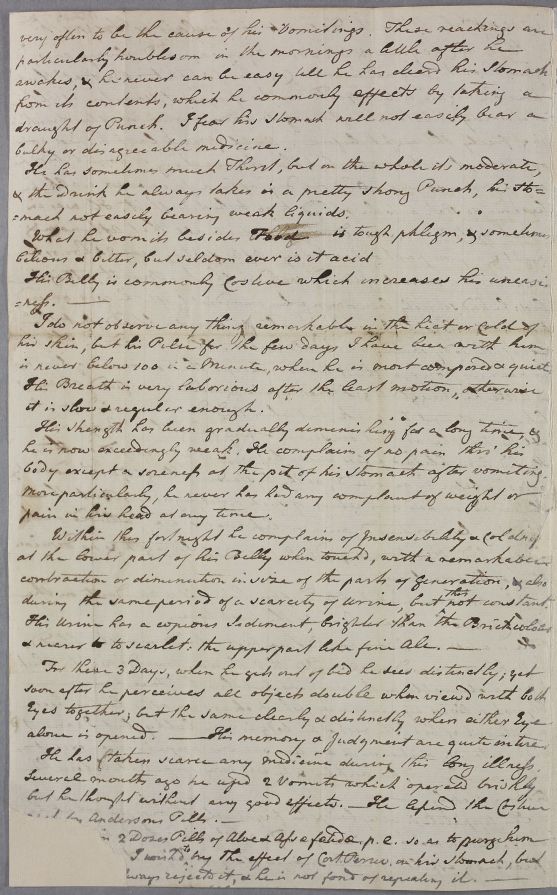 very often to be the cause of his Vomitings. These reachings are
particularly troublesom in the mornings a little after he
awakes, & he never can be easy till he has cleard his Stomach
from its contents, which he commonly effects by taking a
draught of Punch. I fear his stomach will not easily bear a
bulky or disagreeable medicine.
He has sometimes much Thirst, but on the whole it's moderate,
& the Drink he always takes is a pretty strong Punch, his Sto=
=mach not easily bearing weak liquids.
What he vomits besides is tough phlegm, & sometimes
bilious & bitter, but seldom ever is it acid
His Belly is commonly Costive which increases his uneasi
=ness. —
I do not observe any thing remarkable in the heat or Cold of
his skin, but his Pulse for the few days I have been with him
is never below 100 in a Minute, when he is most composed & quiet
His Breath is very laborious after the least motion, otherwise
it is slow & regular enough.
His strength has been gradually diminishing for a long time, &
he is now exceedingly weak. He complains of no pain thro' his
body except a soreness at the pit of his Stomach after vomiting
more particularly, he never has had any complaint of weight or
pain in his head at any time.
Within this fortnight he complains of Insensibility & Coldness
at the lower part of his Belly when touch'd, with a remarkable
contraction or diminution in size of the parts of Generation, & also
during the same period of a scarcity of Urine, but this not constant
His Urine has a copious Sediment, brighter than the Brick colour
& nearer to scarlet: the upper part like fine Ale. —
For these 3 Days, when he gets out of bed he sees distinctly; yet
soon after he perceives all objects double when view'd with both
Eyes together; but the same clearly & distinctly when either Eye
alone is opened. — His memory & Judgment are quite intire
He has taken scarce any medicine during this long illness
Several months ago he used 2 Vomits which operated briskly
but he thought without any good effects. — He the Costive
Andersons Pills. —
2 Doses Pills of Aloe & Assafetida p. e. so as to purge him
I wish'd to try the effect of Cort. Peruv. on his Stomach, but
always rejects it, & he is not fond of repeating it —